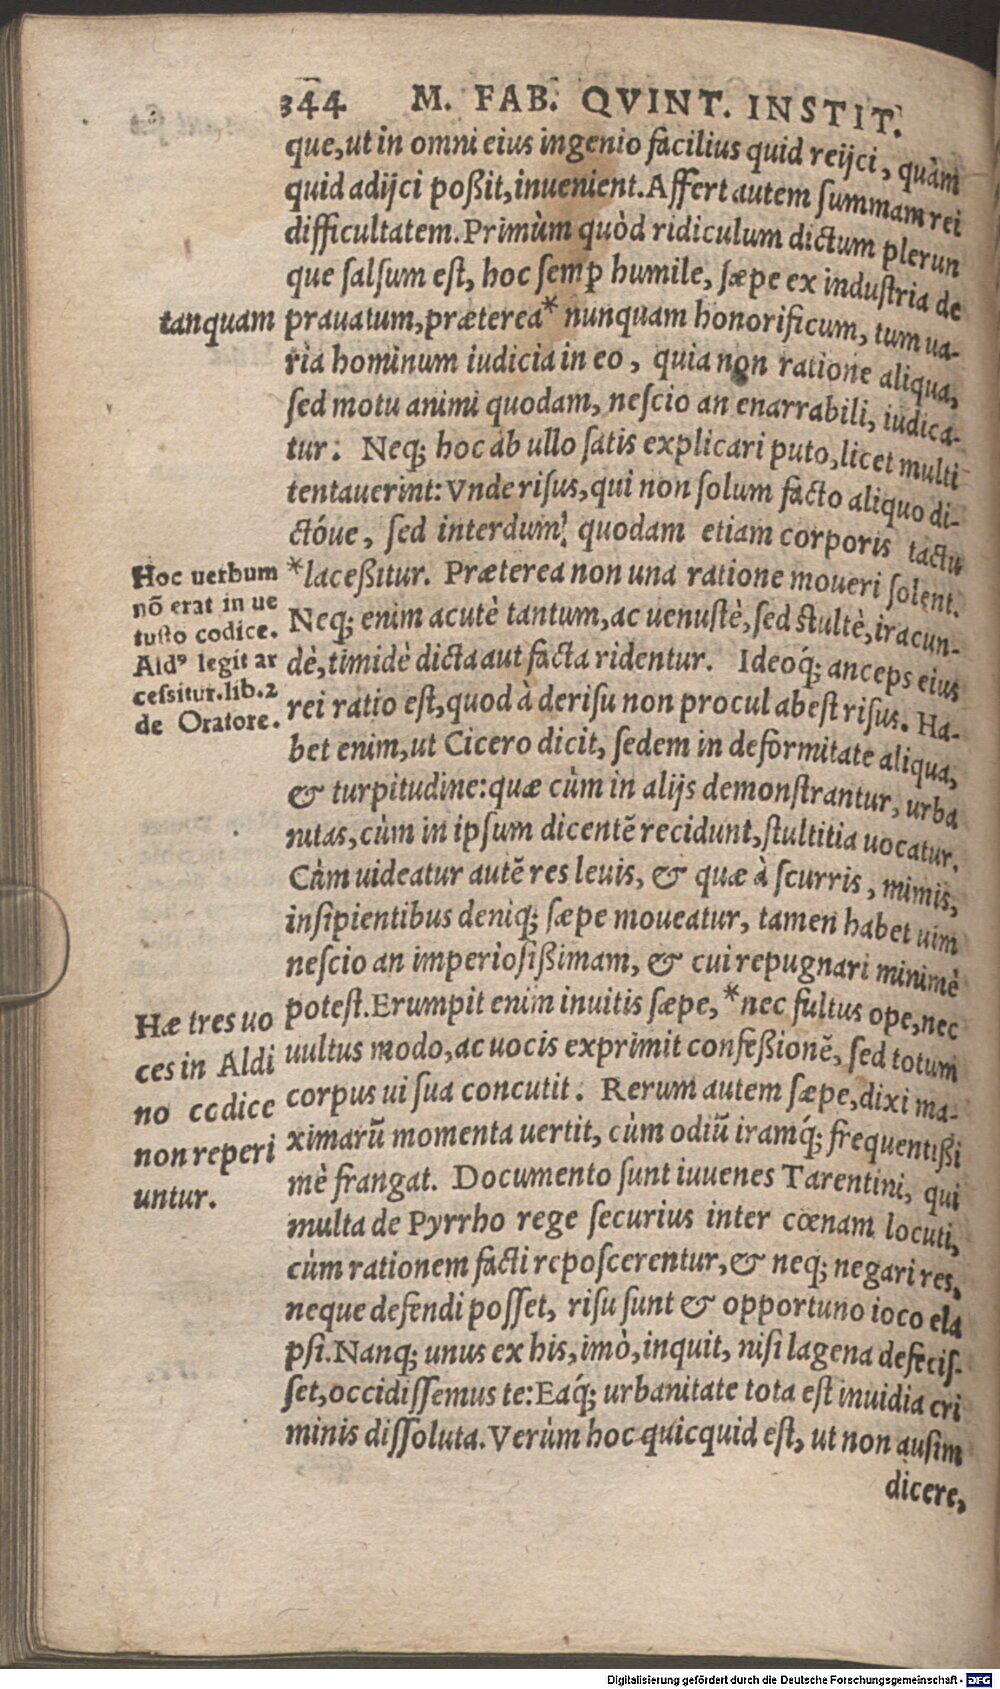 344 M. FAB. QVINT. INSTIT.
que, ut in omni eius ingenio facilius quid reijci, quàm
quid adijci poßit, inuenient. Affert autem ſummam rei
difficultatem. Primùm quòd ridiculum dictum plerun
que ſalſum eſt, hoc ſemꝑ humile, ſæpe ex induſtria de
tanquam
prauatum, præterea* nunquam honorificum, tum ua-
ria hominum iudicia in eo, quia non ratione aliqua,
ſed motu animi quodam, neſcio an enarrabili, iudica-
tur: Neq; hoc ab ullo ſatis explicari puto, licet multi
tentauerint: Vnde riſus, qui non ſolum facto aliquo di-
ctóue, ſed interdum quodam etiam corporis tactu
*laceßitur. Præterea non una ratione moueri ſolent.
Neq; enim acutè tantum, ac uenuſtè, ſed ſtultè, iracun-
dè, timidè dicta aut facta ridentur. Ideoq́; anceps eius
rei ratio eſt, quod à deriſu non procul abeſt riſus. Ha-
bet enim, ut Cicero dicit, ſedem in deformitate aliqua,
& turpitudine: quæ cùm in alijs demonſtrantur, urba
nitas, cùm in ipſum dicentē recidunt, ſtultitia uocatur.
Cùm uideatur autē res leuis, & quæ à ſcurris, mimis,
inſipientibus deniq; ſæpe moueatur, tamen habet uim
neſcio an imperioſißimam, & cui repugnari minimè
poteſt. Erumpit enim inuitis ſæpe, *nec fultus ope, nec
uultus modo, ac uocis exprimit confeßionē, ſed totum
corpus ui ſua concutit. Rerum autem ſæpe, dixi ma-
ximarū momenta uertit, cùm odiū iramq́; frequentißi
mè frangat. Documento ſunt iuuenes Tarentini, qui
multa de Pyrrho rege ſecurius inter cœnam locuti,
cùm rationem facti repoſcerentur, & neq; negari res,
neque defendi poſſet, riſu ſunt & opportuno ioco ela
pſi. Nanq; unus ex his, imò, inquit, niſi lagena defeciſ-
ſet, occidiſſemus te: Eaq́; urbanitate tota eſt inuidia cri
minis diſſoluta. Verùm hoc quicquid eſt, ut non auſim
dicere,
Hoc uerbum
nō erat in ue
tuſto codice.
Ald⁹ legit ar
ceſsitur. lib. 2
de Oratore.
Hæ tres uo
ces in Aldi
no codice
non reperi
untur.
Digitalisierung gefördert durch die Deutsche Forschungsgemeinschaft - DFG